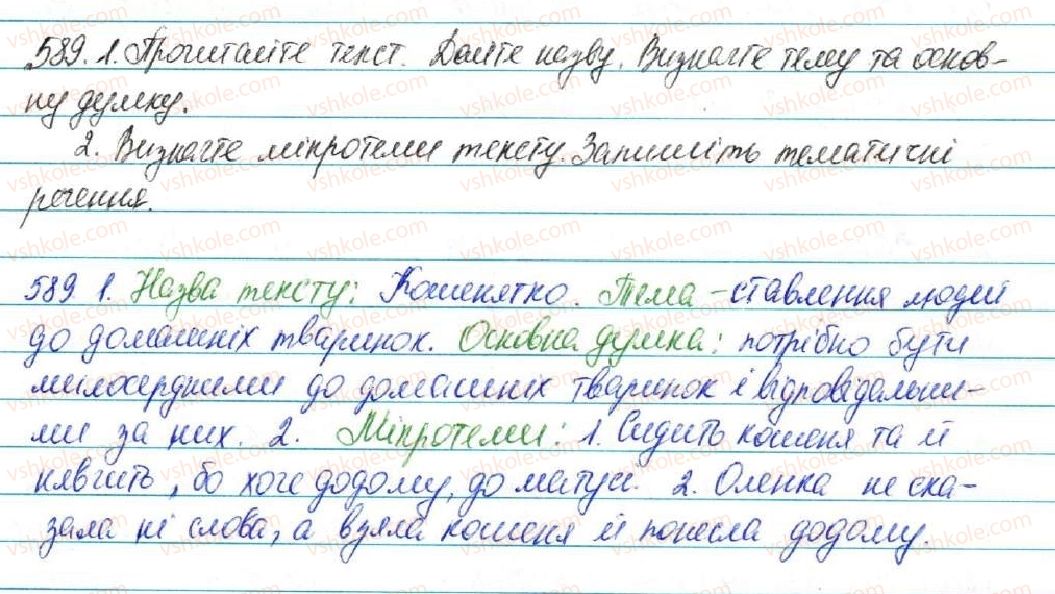 589. 1. Прочитайте текст. Дайте назву. Визначте тему та основ-
ну думку.
2. Визначте мікротеми тексту. Запишіть тематичні
речення.
589 1. Назва тексту: Кошенятко. Тема - ставлення людей
до домашніх тваринок. Основна думка: потрібно бути
милосердними до домашніх тваринок і відповідальни-
ми за них. 2. Мікротеми: 1. Сидить кошеня та й
нявчить, бо хоче додому, до матусі. 2. Оленка не ска-
зала ні слова, а взяла кошеня й понесла додому.